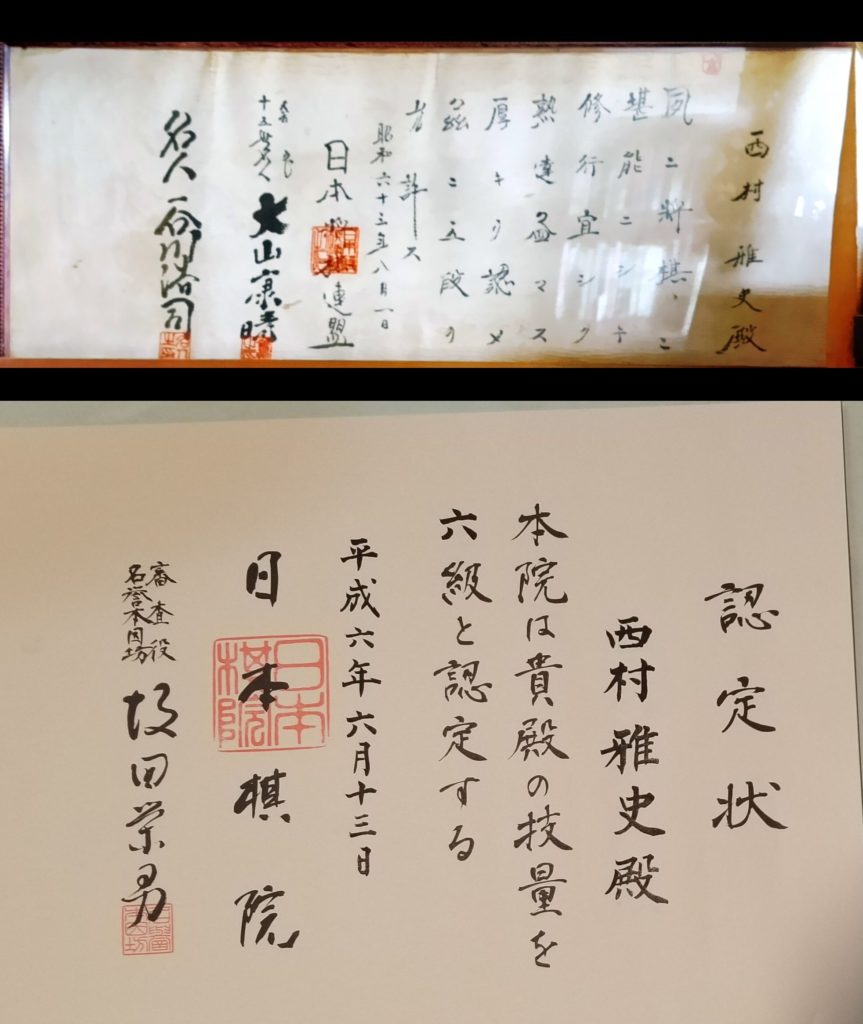 西村雅史殿
夙ニ将棋ニ
堪能ニシテ
修行宜シク
熟達益マス
厚キヲ認メ
玆ニ五段ヲ
許ス
昭和六十三年八月一日
日本将棋連盟
会長
十五世名人 大山康晴
名人 谷川浩司
認定状
西村雅史殿
本院は貴殿の技量を
六級と認定する
平成六年六月十三日
日本棋院
日本棋院
審査役
名誉本因坊 坂田栄男